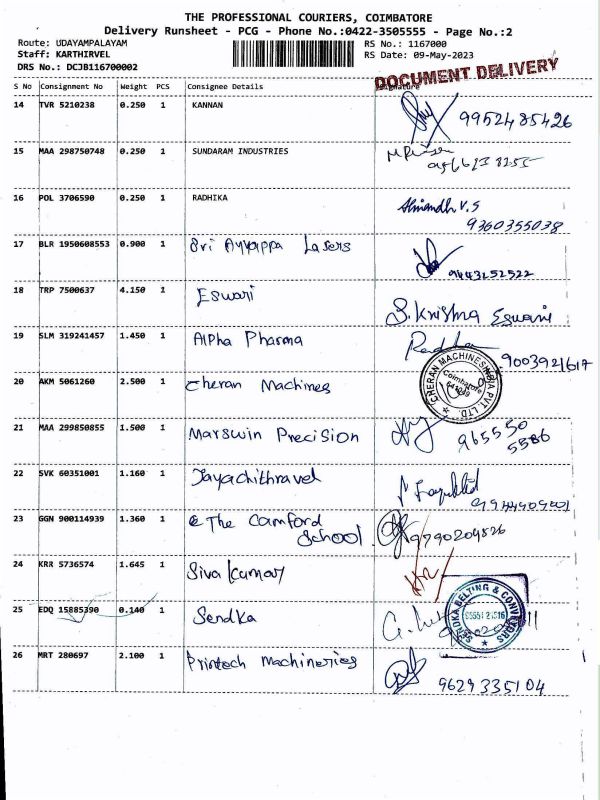 THE PROFESSIONAL COURIERS, COIMBATORE
Delivery Runsheet - PCG - Phone No.:0422-3505555 - Page No.:2
Route: UDAYAMPALAYAM
RS No.: 1167000
Staff: KARTHIRVEL
RS Date: 09-May-2023
DRS No.: DCJB116700002
DOCUMENT DELIVERY
S No Consignment No Weight PCS Consignee Details Signature
14 TVR 5210238 0.250 1 KANNAN 9952485426
15 MAA 298750748 0.250 1 SUNDARAM INDUSTRIES
16 POL 3706590 0.250 1 RADHIKA V.S
9360355038
17 BLR 1950608553 0.900 1 Sri Ayyappa Lasers
9443252522
18 TRP 7500637 4.150 1 Eswari S. Krishna Eswari
19 SLM 319241457 1.450 1 Alpha Pharma
9003921617
20 AKM 5061260 2.500 1 Cheran Machines CHERAN MACHINES INDIA PVT. LTD. Coimbatore
21 MAA 299850855 1.500 1 Marswin Precision 965550
5586
22 SVK 60351001 1.160 1 Jayachithravel
23 GGN 900114939 1.360 1 The Camford
School 9790204826
24 KRR 5736574 1.645 1 Siva kumar
25 EDQ 15885390 0.140 1 Sendka SENDKA BELTING & CONVEYORS
26 MRT 280697 2.100 1 Printech Machineries
9629335104